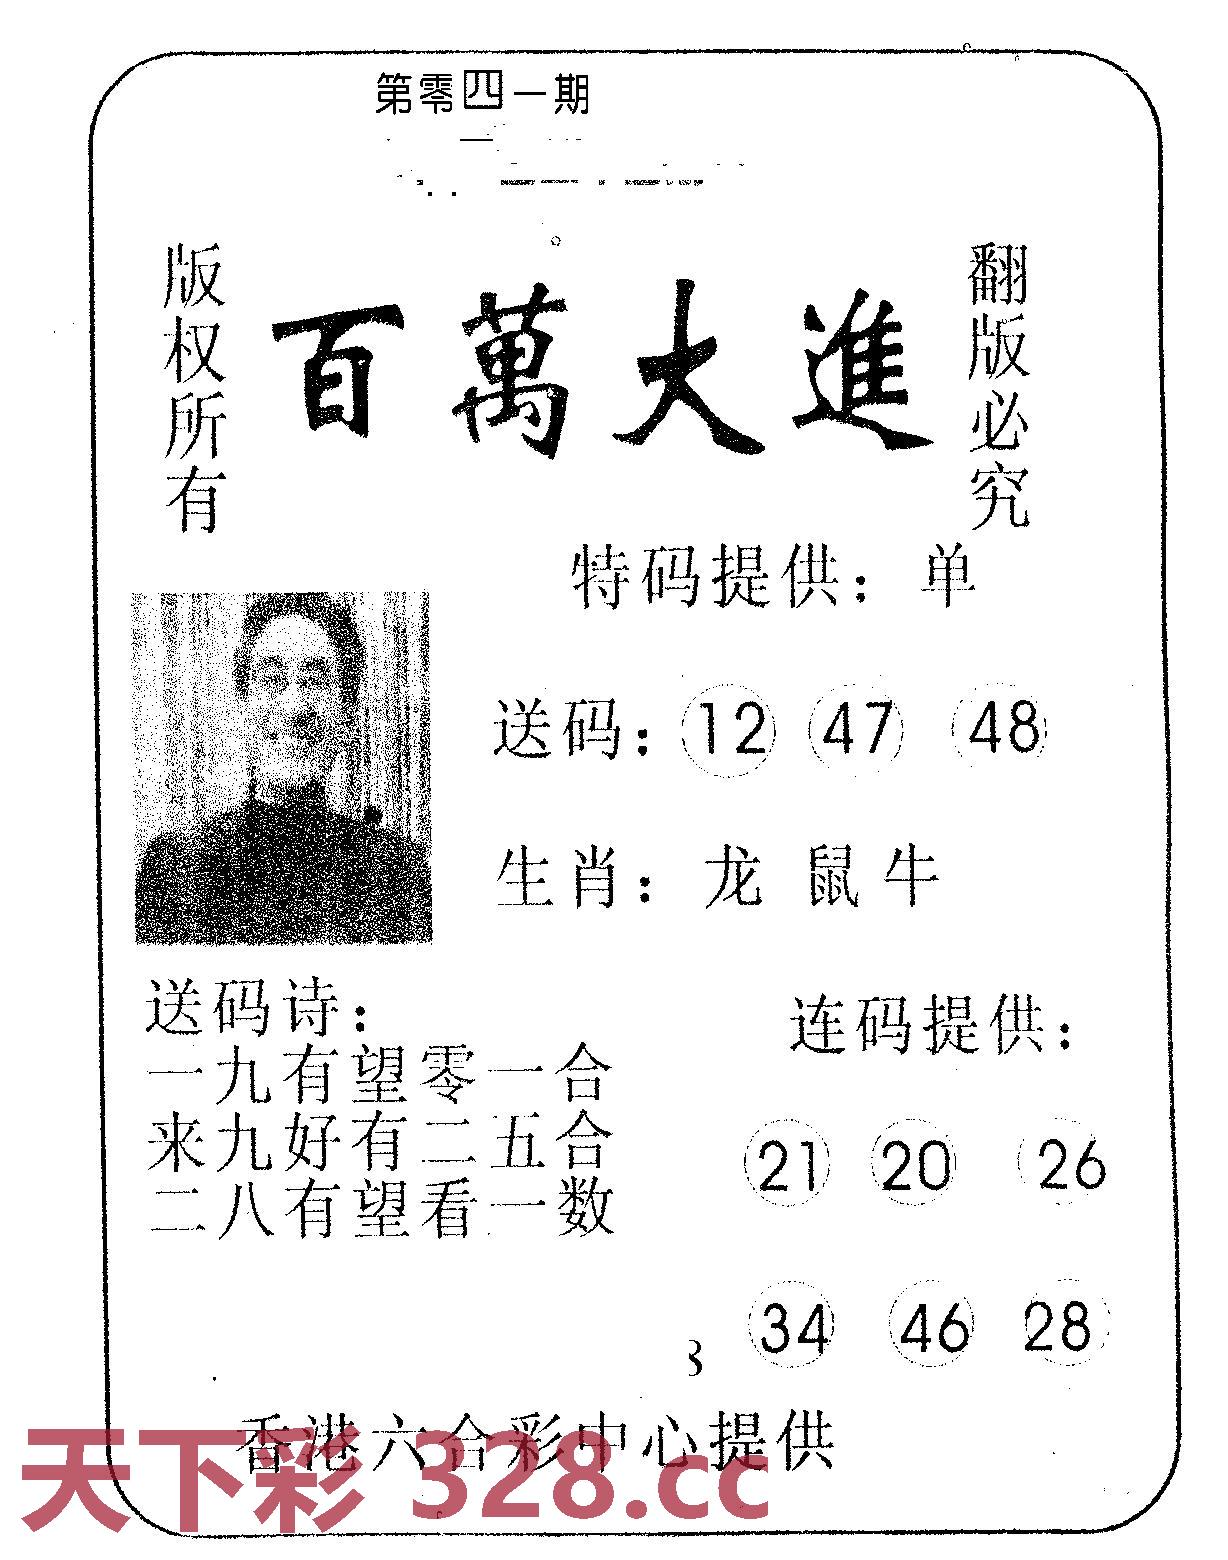 第零四一期
版权所有
百萬大進
翻版必究
特码提供：单
送码：12 47 48
生肖：龙 鼠 牛
送码诗：
一九有望零一合
来九好有二五合
二八有望看一数
连码提供：
21 20 26
34 46 28
3
香港六合彩中心提供
天下彩 328.cc